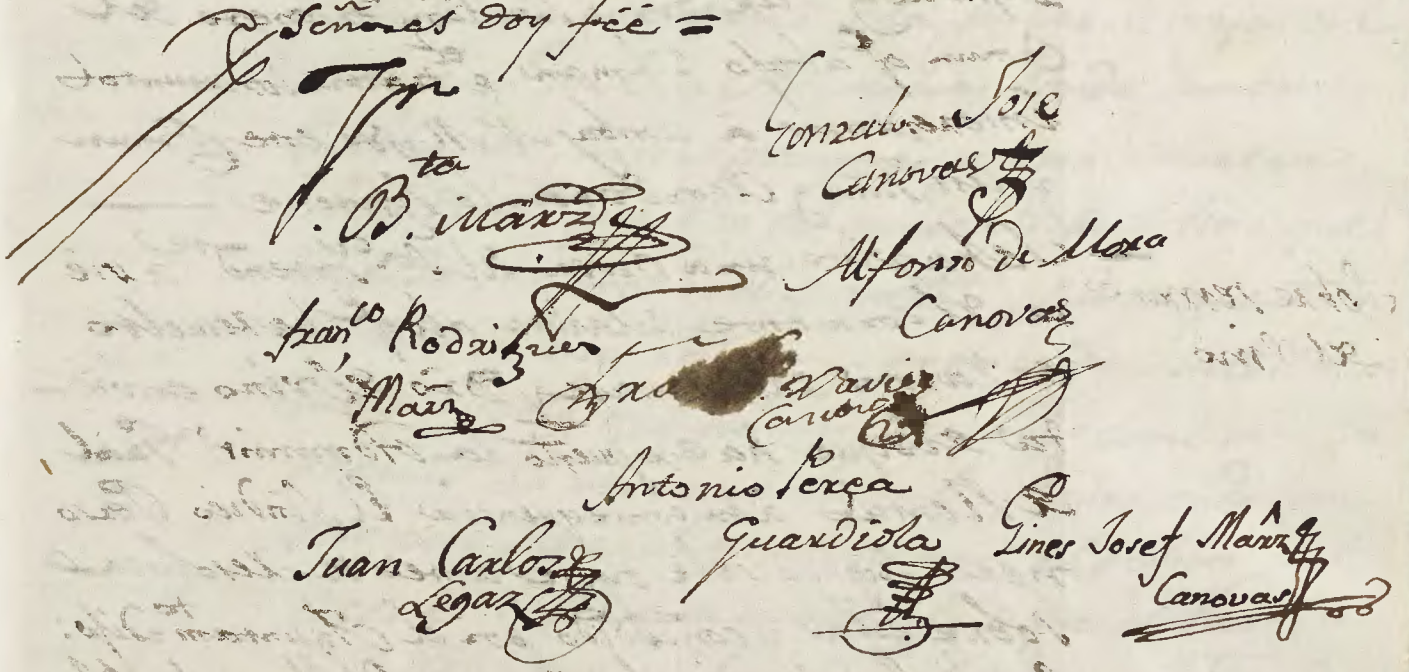 Señores doy feé =
Jn
Gonzalo Jose
Canovas
Bta Marz
Alfonso de Mora
Canovas
franco Rodrigues
Marz
Xavier
Canovas
Antonio Perea
Guardiola
Juan Carlos
Legaz
Gines Josef Marnz
Canovas